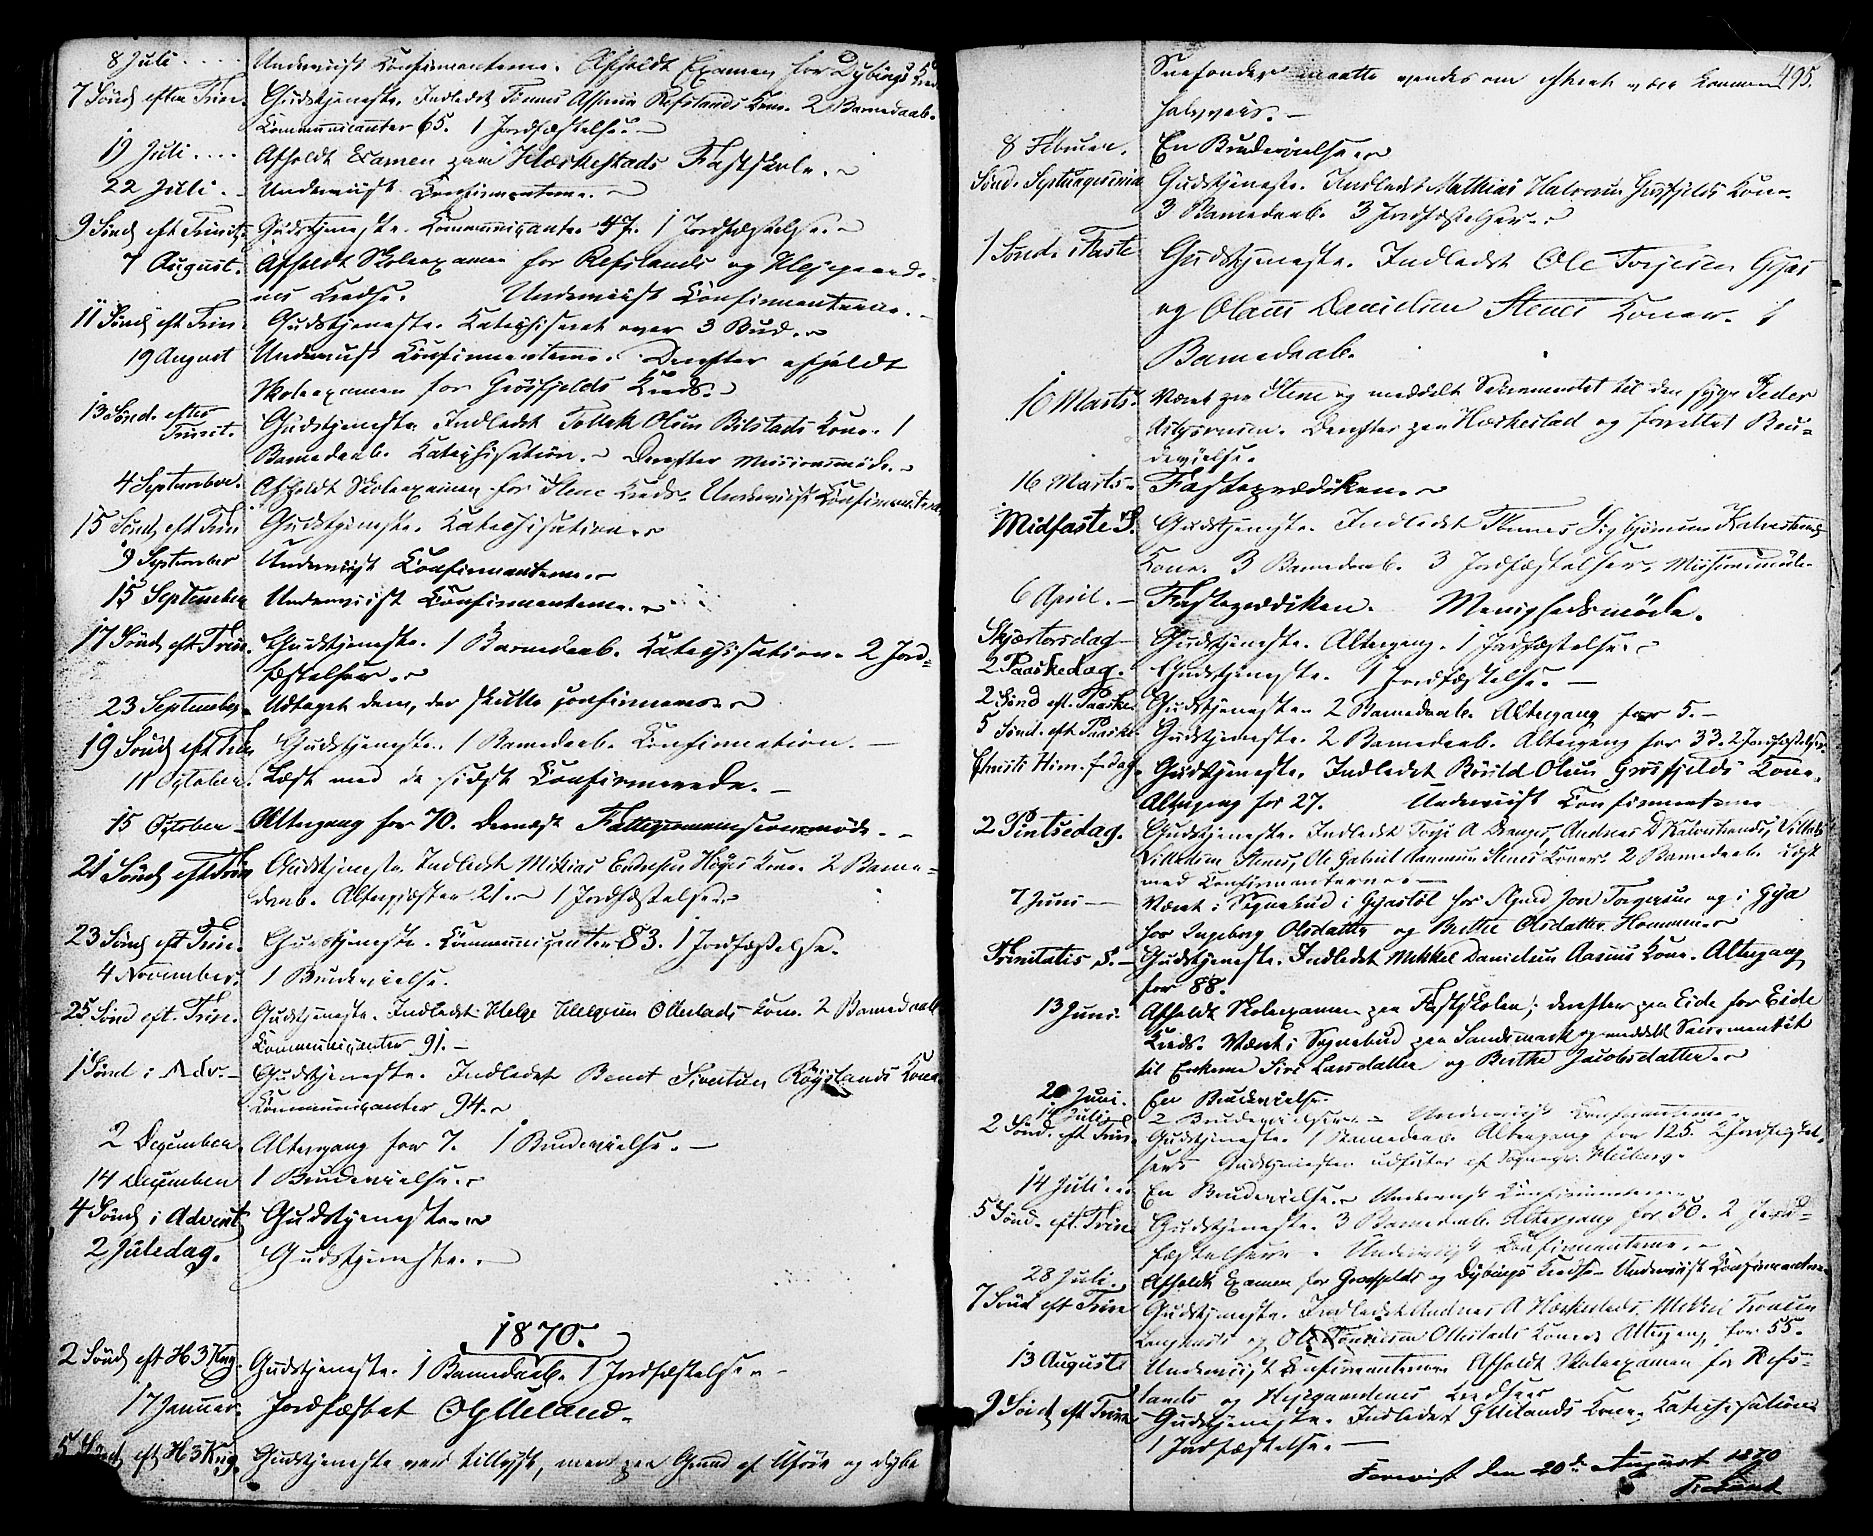 8 Juli .... Underviist Confirmanterne. Afholdt Examen for Dybings Kreds
7 Sønd efter Trin. Gudstjeneste. Indledet Tønnes Refslands Kone. 2 Barnedaab.
Communicanter 65. 1 Jordfæstelse.
19 Juli .... Afholdt Examen paa Hæskestads Fastskole.
22 Juli. Underviist Confirmanterne.
9 Sønd eft Trinit. Gudstjeneste. Communicanter 47. 1 Jordfæstelse.
7 August. Afholdt Skoleexamen for Refslands og Hejgaardenes
Kredse. Underviist Confirmanterne.
11 Sønd eft Trin. Gudstjeneste. Katechiseret over 3 Bud.
19 August Underviist Confirmanterne. Derefter afholdt
Skoleexamen for Grøsfjelds Kreds.
13 Sønd. efter Trinit. Gudstjeneste Indledet Tollak Olsen Bilstads Kone. 1
Barnedaab. Katechisation. Derefter Missionsmøde.
4 September. Afholdt Skoleexamen for Stene Kreds. Underviist Confirmanterne
15 Sønd eft Trin Gudstjeneste. Katechisation.
9 September Underviist Confirmanterne.
15 September Underviist Confirmanterne.
17 Sønd eft Trin. Gudstjeneste. 1 Barnedaab. Katechisation. 2 Jord-
fæstelser.
23 September. Udtaget dem, der skulle confirmeres.
19 Sønd eft Trin Gudstjeneste. 1 Barnedaab. Confirmation.
11 October. Læst med de sidst Confirmerede.
15 October Altergang for 70. Dernæst Fattigcommissionsmøde.
21 Sønd eft Trin Gudstjeneste Indledet Mikias Endresen Høgis Kone. 2 Barne-
daab. Altergjæster 21. 1 Jordfæstelse.
23 Sønd eft Trin. Gudstjeneste. Communicanter 83. 1 Jordfæstelse.
4 November. 1 Brudevielse.
25 Sønd eft. Trin. Gudstjeneste. Indledet Helge Helgesen Ollestads Kone. 2 Barnedaab
Communicanter 91.
1 Sønd i Adv. Gudstjeneste. Indledet Bent Sivertsen Røyslands Kone.
Communicanter 94.
2 December. Altergang for 7. 1 Brudevielse.
14 December 1 Brudevielse.
4 Sønd i Advent Gudstjeneste.
2 Juledag. Gudstjeneste.
1870.
2 Sønd eft H 3 Kng. Gudstjeneste. 1 Barnedaab. 1 Jordfæstelse.
17 Januar. Jordfæstet O Gylleland.
5 Sønd eft H 3 Kng. Gudstjeneste var tillyst, men paa Grund af Uføre og dybe
495.
Snefonder maatte vendes om efterat være kommen
halvveis.
8 Februar. En Brudevielse.
Sønd. Septuagesima Gudstjeneste. Indledet Mathias Halvorsen Grøsfjelds Kone.
3 Barnedaab. 3 Jordfæstelser.
1 Sønd. i Faste Gudstjeneste. Indledet Ole Torjesen Gyas
og Olaus Danielsen Stenes Koner. 1
Barnedaab.
10 Marts. Været paa Stene og meddelt Sakramentet til den syge Peder
Derefter paa Hæskestad og forrettet Bru-
devielse.
16 Marts. Fasteprædiken.
Midfaste S. Gudstjeneste. Indledet Tønnes
Kone. 3 Barnedaab. 3 Jordfæstelser. Missionsmøde.
6 April. Fasteprædiken. Menighedsmøde.
Skjærtorsdag Gudstjeneste. Altergang. 1 Jordfæstelse.
2 Paaskedag. Gudstjeneste. 1 Jordfæstelse.
2 Sønd eft. Paaske. Gudstjeneste 2 Barnedaab. Altergang for 5.
5 Sønd. eft Paaske. Gudstjeneste. 2 Barnedaab. Altergang for 33. 2 Jordfæstelser.
Christi Him. f. dag. Gudstjeneste. Indledet Olsen Grøsfjelds Kone.
Altergang for 27. Underviist Confirmanterne
2 Pintsedag. Gudstjeneste. Indledet Torje A Drangs, Andreas D
Stenes, Ole Gabriel Stenes Koner. 2 Barnedaab. Læst
med Confirmanterne.
7 Juni Været i Sognebud i Gyastøl hos Jon Torgersen og i Gya
hos Ingeborg Olsdatter og Berthe Olsdatter
Trinitatis S. Gudstjeneste. Indledet Mikkel Danielsen Aasens Kone. Altergang
for 88.
13 Juni. Afholdt Skoleexamen paa Fastskolen; derefter paa Eide for Eide
Kreds. Været i Sognebud paa Sandsmark og meddelt Sacramentet
til Enkerne Siri Larsdatter og Berthe Jacobsdatter.
20 Juni. En Brudevielse.
Juli 2 Brudevielser. Underviist Confirmanterne.
2 Sønd. eft Trin. Gudstjeneste. 1 Barnedaab. Altergang for 125. 2 Jordfæstel-
ser. Gudstjenesten udførtes af Sognepr. Heiberg.
14 Juli. En Brudevielse. Underviist Confirmanterne.
5 Sønd. eft. Trin Gudstjeneste. 3 Barnedaab. Altergang for 50. 2 Jord-
fæstelser. Underviist Confirmanterne.
28 Juli. Afholdt Examen for Grøsfjelds og Dybings Kredse. Underviist Confirmanterne
7 Sønd eft Trin Gudstjeneste. Indledet Andreas A Hæskestads, Mikkel
og Ole Ollestads Koner. Altergang for 55.
13 Augusti Underviist Confirmanterne. Afholdt Skoleexamen for Refs-
lands og Hejgaardenes Kredse.
9 Sønd eft Trin. Gudstjeneste. Indledet Gyllelands Kone. Katechisation.
1 Jordfæstelse.
Foreviist den 20de August 1870